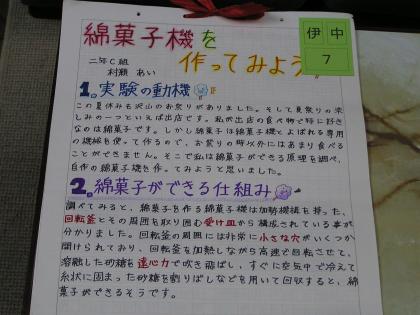 綿菓子機を
作ってみよう
伊 中
7
二年C組
村瀬 あい
1. 実験の動機
この夏休みも沢山のお祭りがありました。そして夏祭りの楽
しみの一つといえば出店です。私が出店の食べ物で特に好き
なのは綿菓子です。しかし綿菓子は綿菓子機とよばれる専用
の機械を使って作るので、お祭りの時以外にはあまり食べる
ことができません。そこで私は綿菓子ができる原理を調べ、
自作の綿菓子機を作ってみようと思いました。
2. 綿菓子ができる仕組み
調べてみると、綿菓子を作る綿菓子機は加熱機構を持った、
回転釜とその周囲を取り囲む受け皿から構成されている事が
分かりました。回転釜の周囲には非常に小さな穴がいくつか
開けられており、回転釜を加熱しながら高速で回転させて、
溶融した砂糖を遠心力で吹き飛ばし、すぐに空気中で冷えて
糸状に固まった砂糖を割りばしなどを用いて回収すると、綿
菓子ができるそうです。